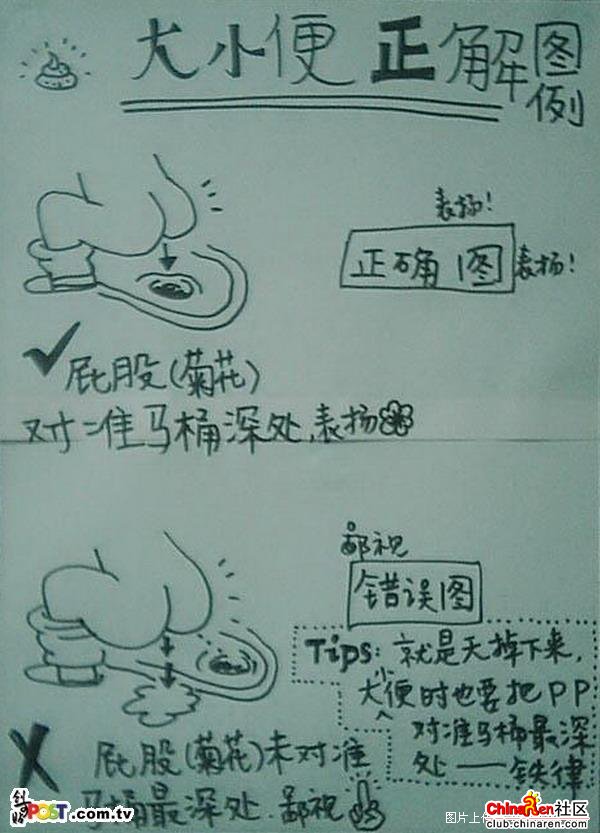 大小便正解图例
表扬!
正确图 表扬!
屁股(菊花)
对准马桶深处,表扬
鄙视
错误图
Tips: 就是天掉下来,
大小便时也要把PP
对准马桶最深
处——铁律
屁股(菊花)未对准
马桶最深处 鄙视
POST.com.tv
图片上
ChinaRen社区
club.chinaren.com